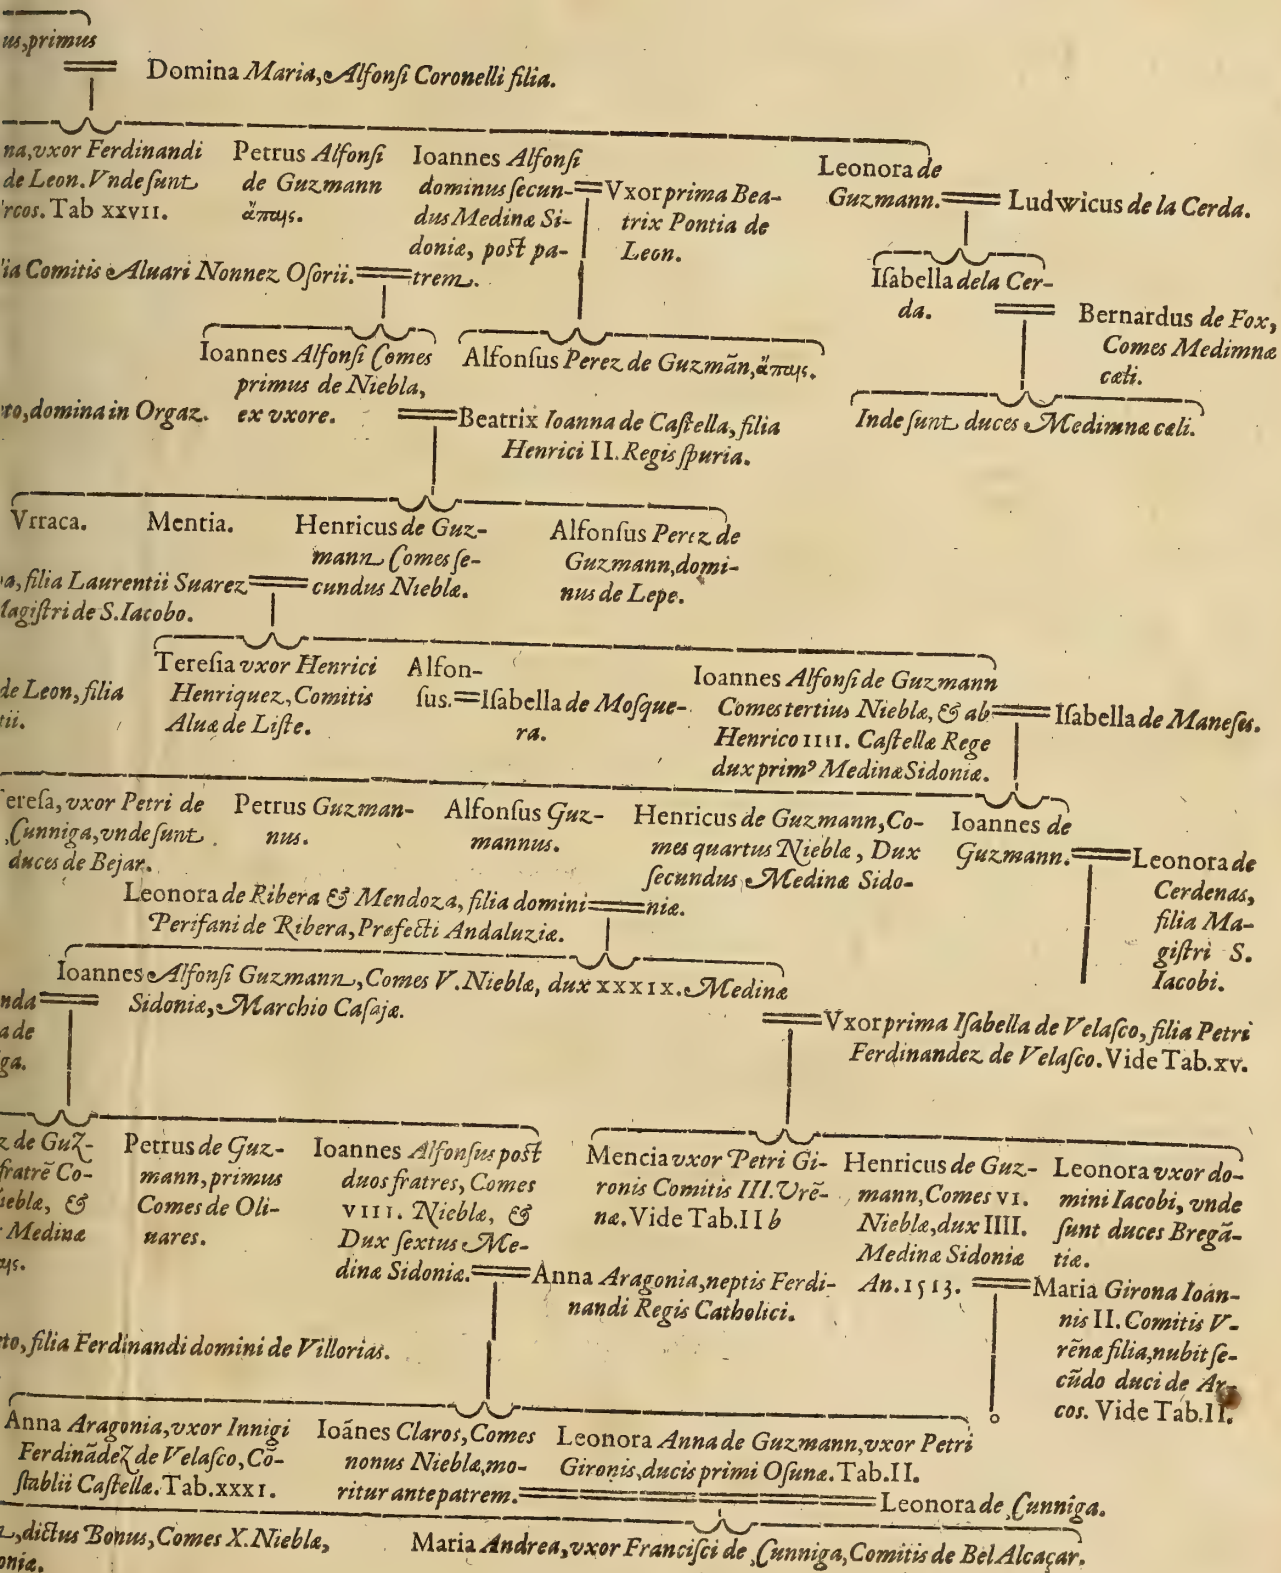 us,primus
Domina Maria, Alfonſi Coronelli filia.
na,vxor Ferdinandi
de Leon. Vnde ſunt
rcos. Tab xxvii.
Petrus Alfonſi
de Guzmann
ἄπαις.
Ioannes Alfonſi
dominus ſecun-
dus Medinæ Si-
doniæ, poſt pa-
trem.
Vxor prima Bea-
trix Pontia de
Leon.
Leonora de
Guzmann.
Ludwicus de la Cerda.
ia Comitis Aluari Nonnez Oſorii.
Iſabella dela Cer-
da.
Bernardus de Fox,
Comes Medimnæ
cœli.
Ioannes Alfonſi Comes
primus de Niebla,
ex vxore.
Alfonſus Perez de Guzmãn, ἄπαις.
to, domina in Orgaz.
Beatrix Ioanna de Caſtella, filia
Henrici II. Regis ſpuria.
Inde ſunt duces Medimnæ cœli.
Vrraca.
Mentia.
Henricus de Guz-
mann Comes ſe-
cundus Nieblæ.
Alfonſus Perez de
Guzmann, domi-
nus de Lepe.
a, filia Laurentii Suarez
Magiſtri de S. Iacobo.
Tereſia vxor Henrici
Henriquez, Comitis
Aluæ de Liſte.
Alfon-
ſus.
Iſabella de Moſque-
ra.
Ioannes Alfonſi de Guzmann
Comes tertius Nieblæ, & ab
Henrico IIII. Caſtellæ Rege
dux primꝰ Medinæ Sidoniæ.
Iſabella de Maneſes.
de Leon, filia
tii.
ereſa, vxor Petri de
Çunniga, vnde ſunt
duces de Bejar.
Petrus Guzman-
nus.
Alfonſus Guz-
mannus.
Henricus de Guzmann, Co-
mes quartus Nieblæ, Dux
ſecundus Medinæ Sido-
niæ.
Ioannes de
Guzmann.
Leonora de
Cerdenas,
filia Ma-
giſtri S.
Iacobi.
Leonora de Ribera & Mendoza, filia domini
Perifani de Ribera, Præfecti Andaluziæ.
Ioannes Alfonſi Guzmann, Comes V. Nieblæ, dux XXXIX. Medinæ
Sidoniæ, Marchio Caſajæ.
nda
a de
ga.
Vxor prima Iſabella de Velaſco, filia Petri
Ferdinandez de Velaſco. Vide Tab. xv.
z de Guz-
fratrẽ Co-
ieblæ, &
Medinæ
Petrus de Guz-
mann, primus
Comes de Oli-
uares.
Ioannes Alfonſus poſt
duos fratres, Comes
VIII. Nieblæ, &
Dux ſextus Me-
dinæ Sidoniæ.
Mencia vxor Petri Gi-
ronis Comitis III. Vrẽ-
næ. Vide Tab. II b
Henricus de Guz-
mann, Comes VI.
Nieblæ, dux IIII.
Medinæ Sidoniæ
An. 1513.
Leonora vxor do-
mini Iacobi, vnde
ſunt duces Bregã-
tiæ.
Anna Aragonia, neptis Ferdi-
nandi Regis Catholici.
Maria Girona Ioan-
nis II. Comitis V-
rẽnæ filia, nubit ſe-
cũdo duci de Ar-
cos. Vide Tab. II.
to, filia Ferdinandi domini de Villorias.
Anna Aragonia, vxor Innigi
Ferdinãdez de Velaſco, Cõ-
ſtablii Caſtellæ. Tab. xxxI.
Ioãnes Claros, Comes
nonus Nieblæ, mo-
ritur ante patrem.
Leonora Anna de Guzmann, vxor Petri
Gironis, ducis primi Oſunæ. Tab. II.
Leonora de Çunniga.
dictus Bonus, Comes X. Nieblæ,
oniæ.
Maria Andrea, vxor Franciſci de Çunniga, Comitis de Bel Alcaçar.